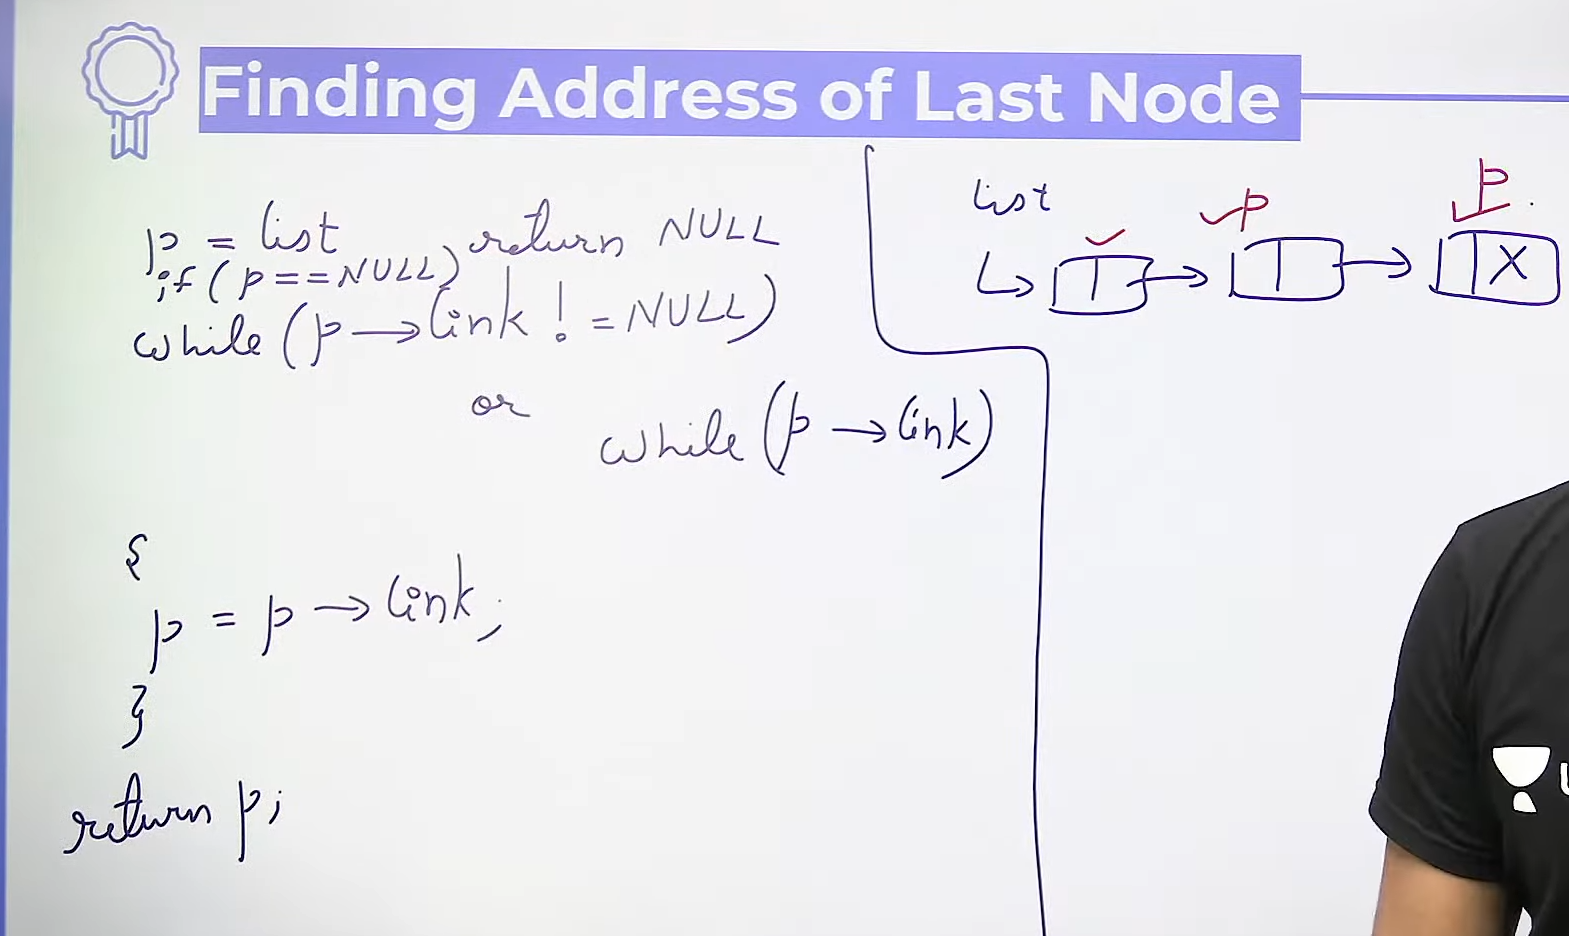 Finding Address of Last Node
p = list
if (p == NULL) return NULL
while (p → link != NULL)
or
while (p → link)
{
p = p → link;
}
return p;
list
p
p
X